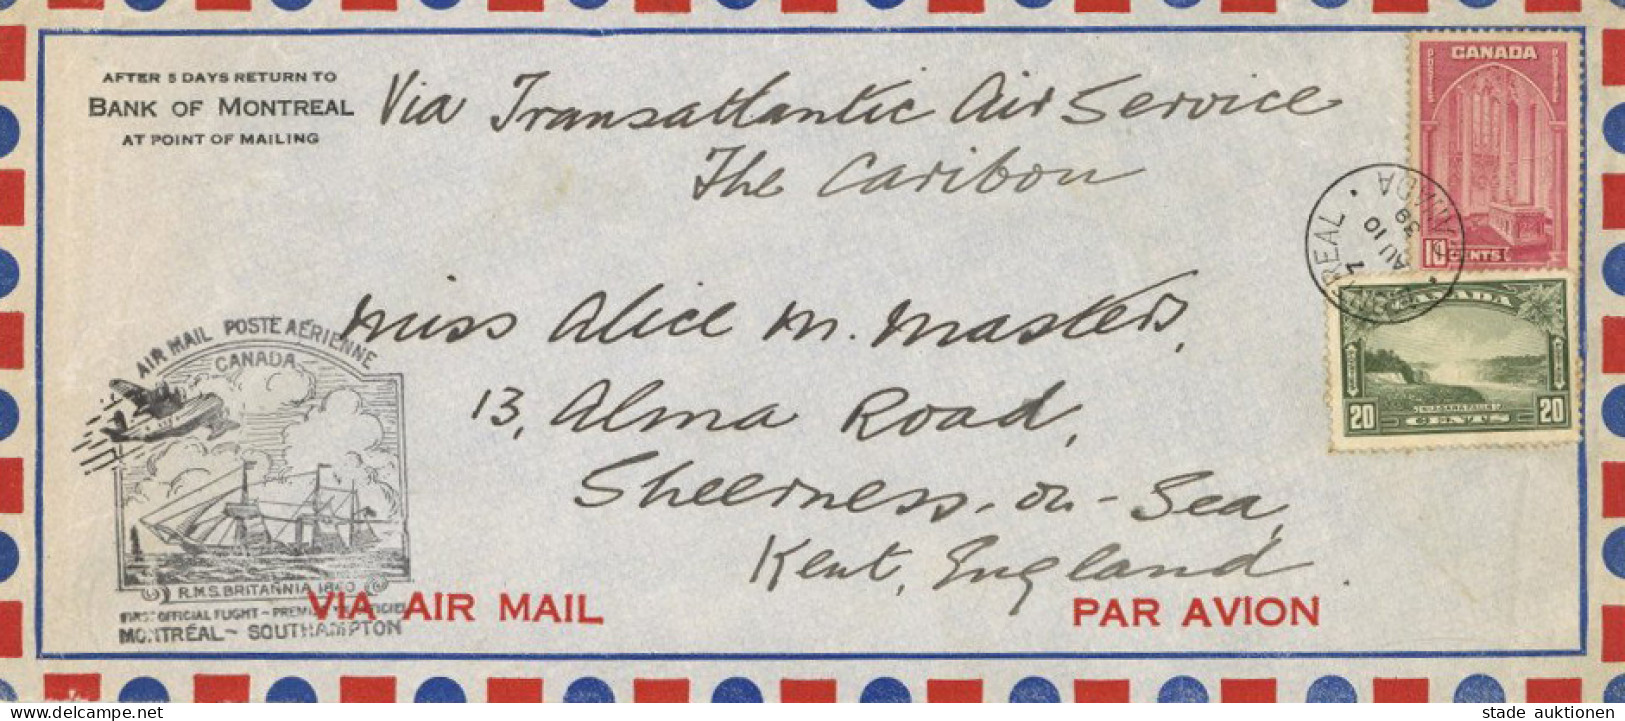 AFTER 5 DAYS RETURN TO
BANK OF MONTREAL
AT POINT OF MAILING
Via Transatlantic Air Service
The Caribou
CANADA
10 CENTS
REAL
CANADA
7
AU 10
39
CANADA
NIAGARA FALLS
20 CENTS 20
Miss Alice M. Masters,
13, Alma Road,
Sheerness-on-Sea,
Kent, England.
AIR MAIL POSTE AÉRIENNE
CANADA
R.M.S. BRITANNIA 1840
FIRST OFFICIAL FLIGHT - PREMIER
MONTRÉAL - SOUTHAMPTON
VIA AIR MAIL
PAR AVION
©delcampe.net
stade auktionen